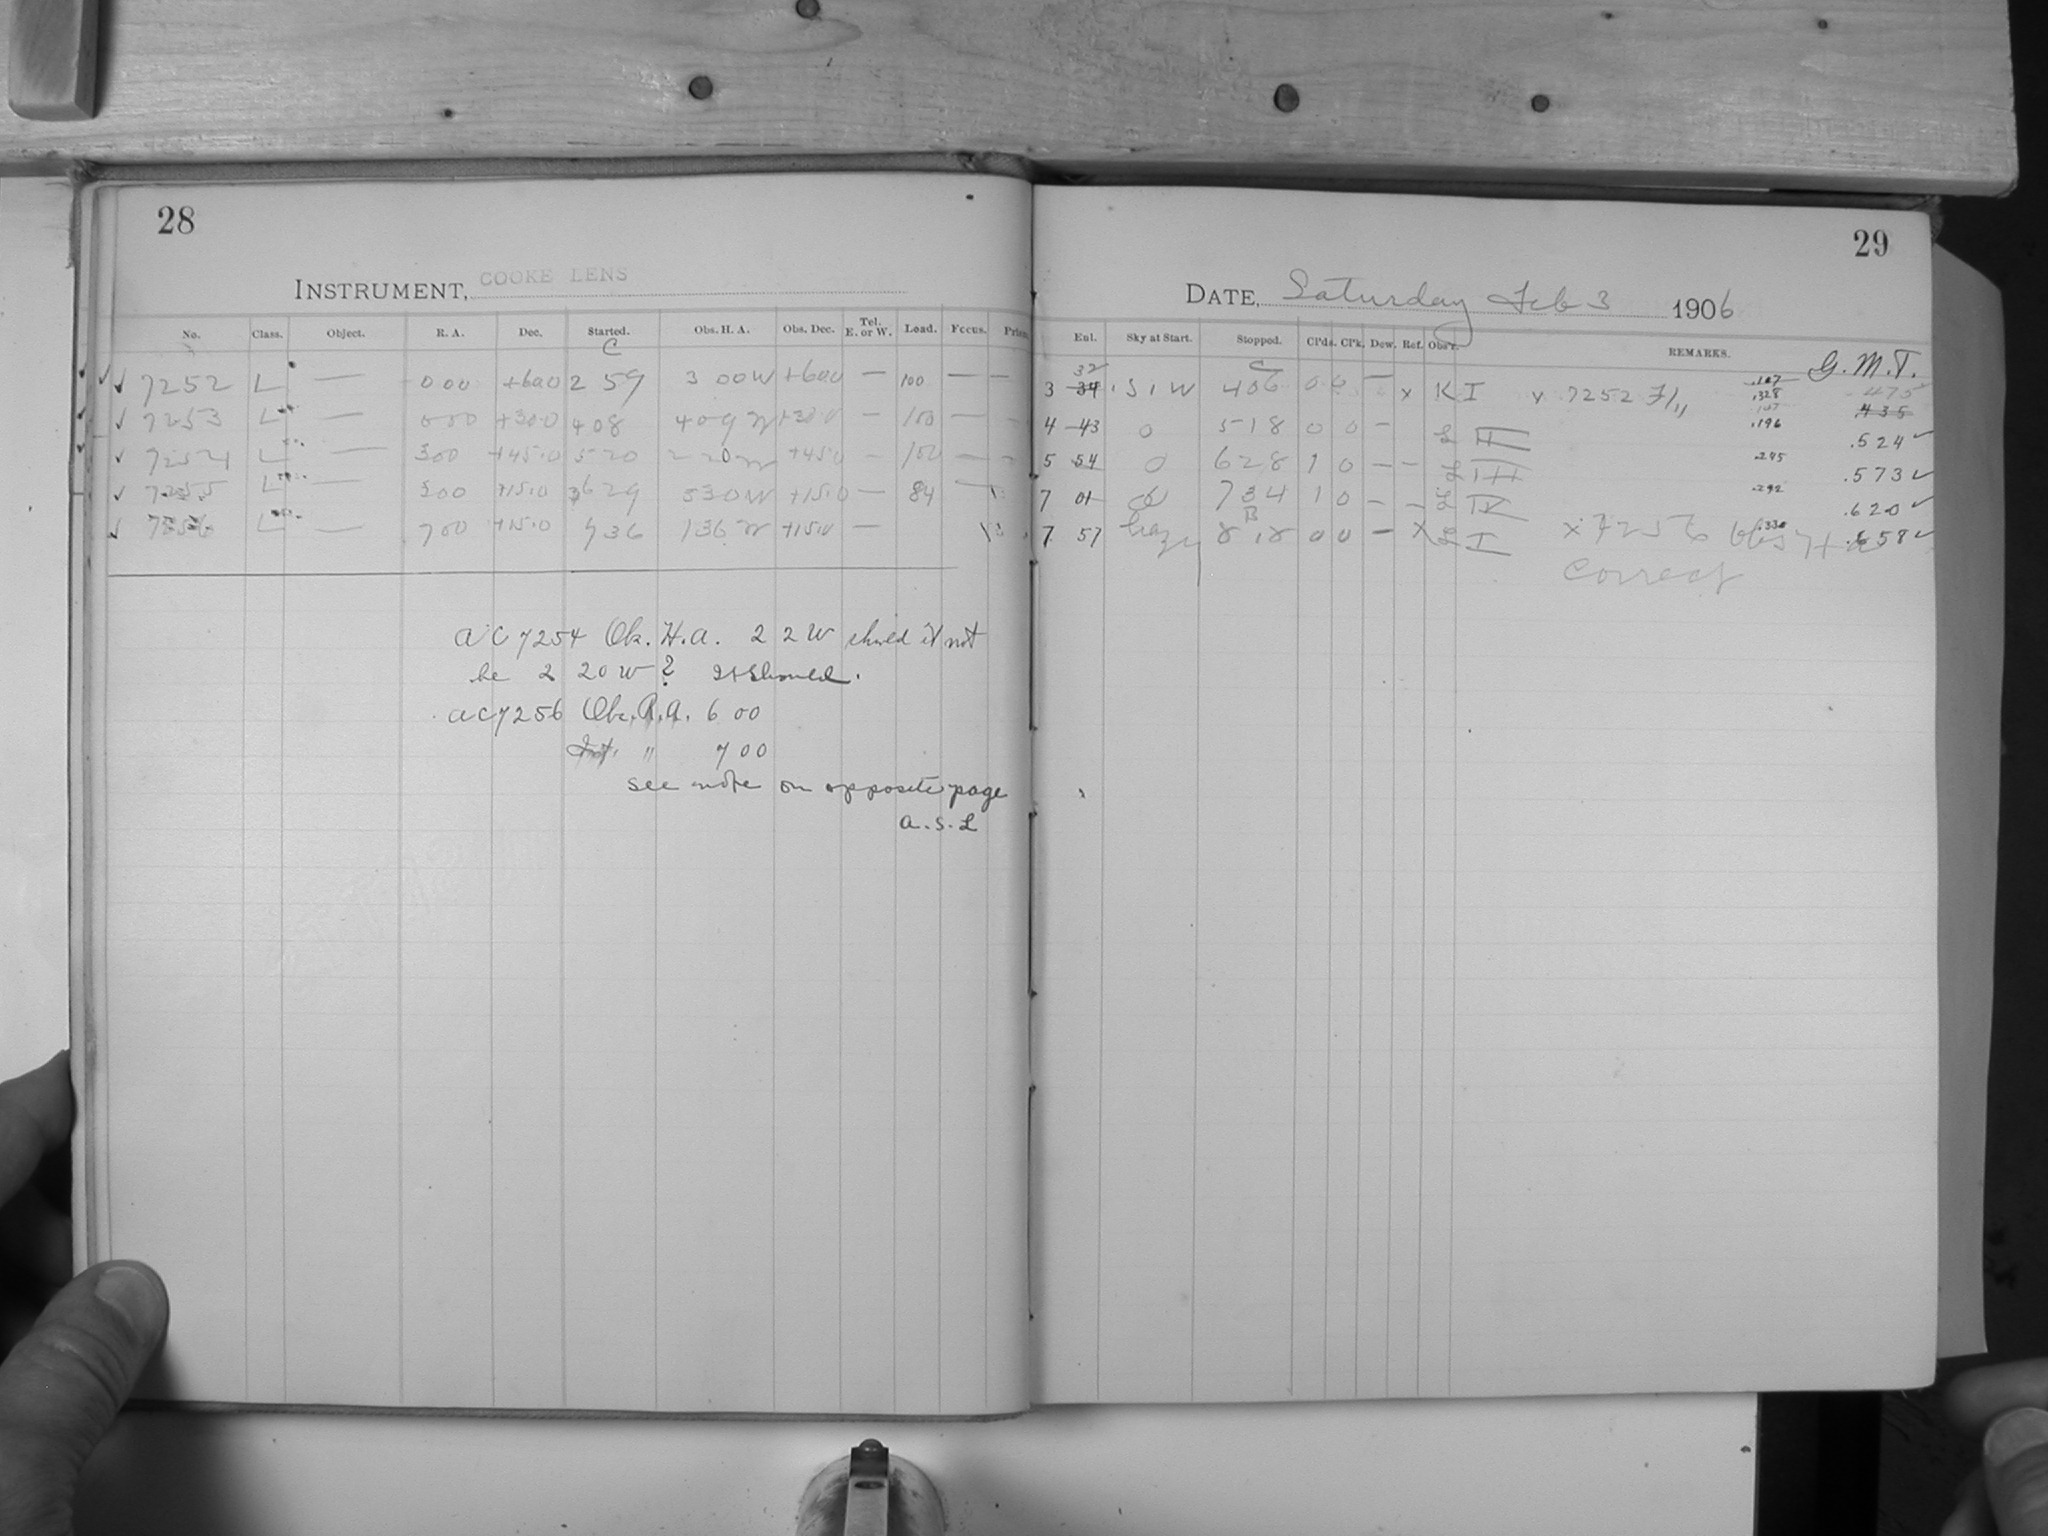 28
INSTRUMENT, COOKE LENS
No. Class. Object. R. A. Dec. Started. Obs. H. A. Obs. Dec. Tel. E. or W. Load. Focus. Prism
C
7252 L — 0 00 +60.0 2 59 3 00 W +60.0 — 100 — —
7253 L — 0 00 +30.0 4 08 4 09 W +30.0 — 100 —
7254 L — 3 00 +45.0 5 20 2 20 W +45.0 — 100 — —
7255 L — 3 00 +15.0 6 29 3 30 W +15.0 — 84 —
7256 L — 7 00 +15.0 7 36 1 36 W +15.0 —
AC 7254 Obs. H.A. 2 2 W should it not
be 2 20 W ? It should.
AC 7256 Obs. R.A. 6 00
" 7 00
see note on opposite page
A. S. L
29
DATE, Saturday Feb 3 1906
Eql. Sky at Start. Stopped. Cl'ds. Cl'k. Dew. Ref. Obs'r. REMARKS. G. M. T.
32 C
3 34 S I W 4 06 0 0 — x K I x 7252 F/11 .328 .475
.435
4 43 0 5 18 0 0 — L II .196 .524 ✓
5 54 0 6 28 1 0 — — L III .245 .573 ✓
7 01 7 34 1 0 — — L IV .292 .620 ✓
B
7 57 hazy 8 18 0 0 — X L I x 7256 .330 .658 ✓
correct